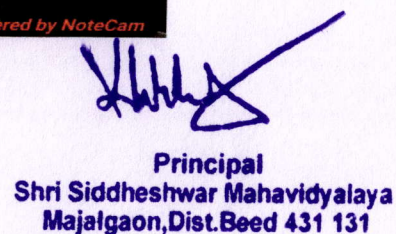 ered by NoteCam
Principal
Shri Siddheshwar Mahavidyalaya
Majalgaon,Dist.Beed 431 131